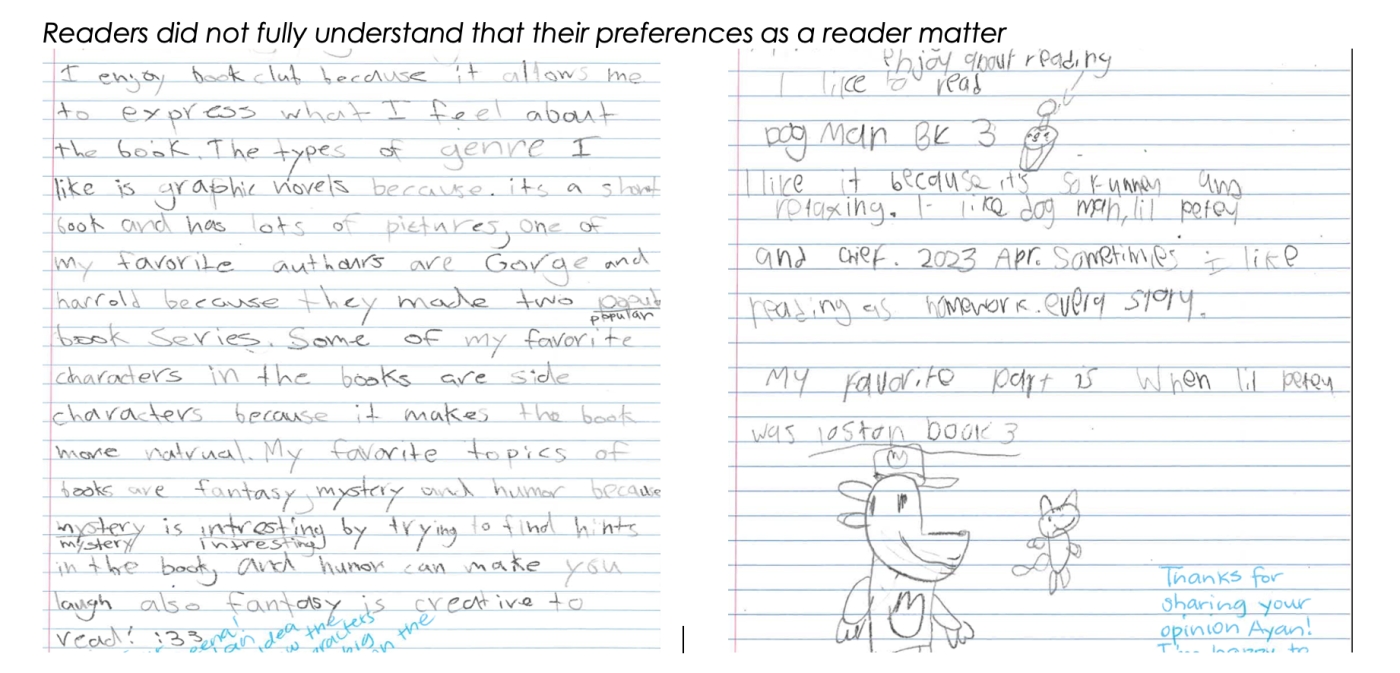 Readers did not fully understand that their preferences as a reader matter
I enjoy book club because it allows me
to express what I feel about
the book. The types of genre I
like is graphic novels because. its a short
book and has lots of pictures, one of
my favorite authours are Gorge and
harrold because they made two
popular
book series. Some of my favorite
characters in the books are side
characters because it makes the book
more natrual. My favorite topics of
books are fantasy, mystery and humor because
mystery is intresting by trying to find hints
mystery intresting
in the book, and humor can make you
laugh also fantasy is creative to
read! :33
an idea the
in the
enjoy about reading
I like to read
Dog Man BK 3
I like it because it's so funny and
relaxing. I like dog man, lil petey
and chief. 2023 Apr. Sometimes I like
reading as homework. every story.
My favorite part is when lil petey
was lost on book 3
Thanks for
sharing your
opinion Ayan!